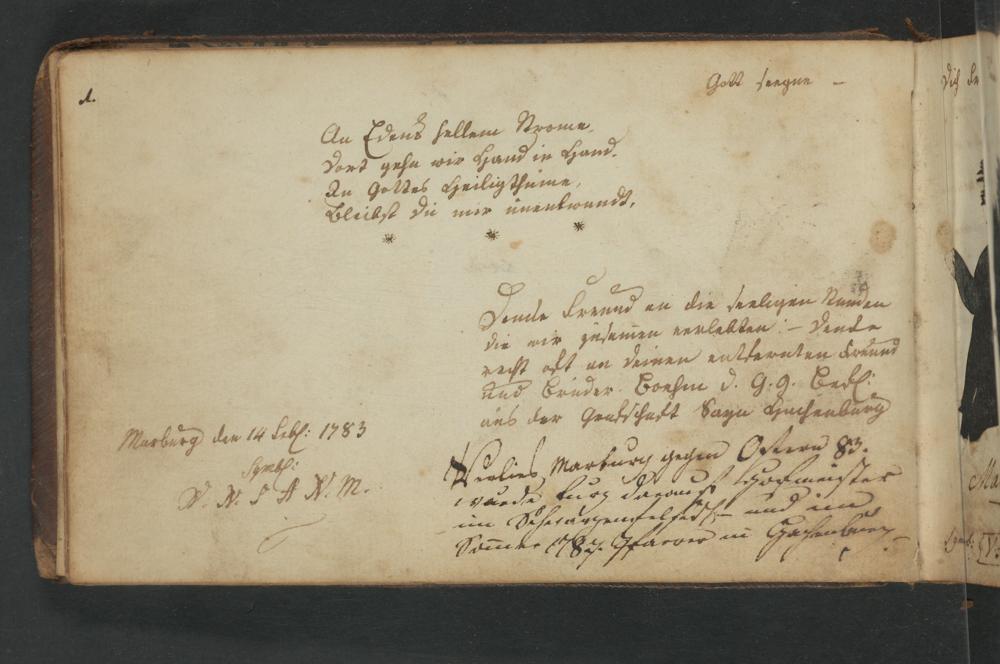 1.
Gott seegne –
An Edens hellem Strome,
Dort gehn wir Hand in Hand.
In Gottes Heiligthume,
Bleibst du mir unentwandt.
Denke Freund an die seeligen Stunden
die wir zusamen verlebten! – denke
recht oft an deinen entfernten Freund
und Bruder. Boehm d. G. G. Befl:
aus der Grafschaft Sayn Hachenburg
Marburg den 14 Febr: 1783
Symb:
V. N. S. A. N. M.
Verlies Marburg gegen Ostern 83.
wurde kurz darauf Hofmeister
im Schwarzenfelsisch– und im
Somer 1787. Pfarrer in Hachenburg –
Dich
Ma
Symb:
V.